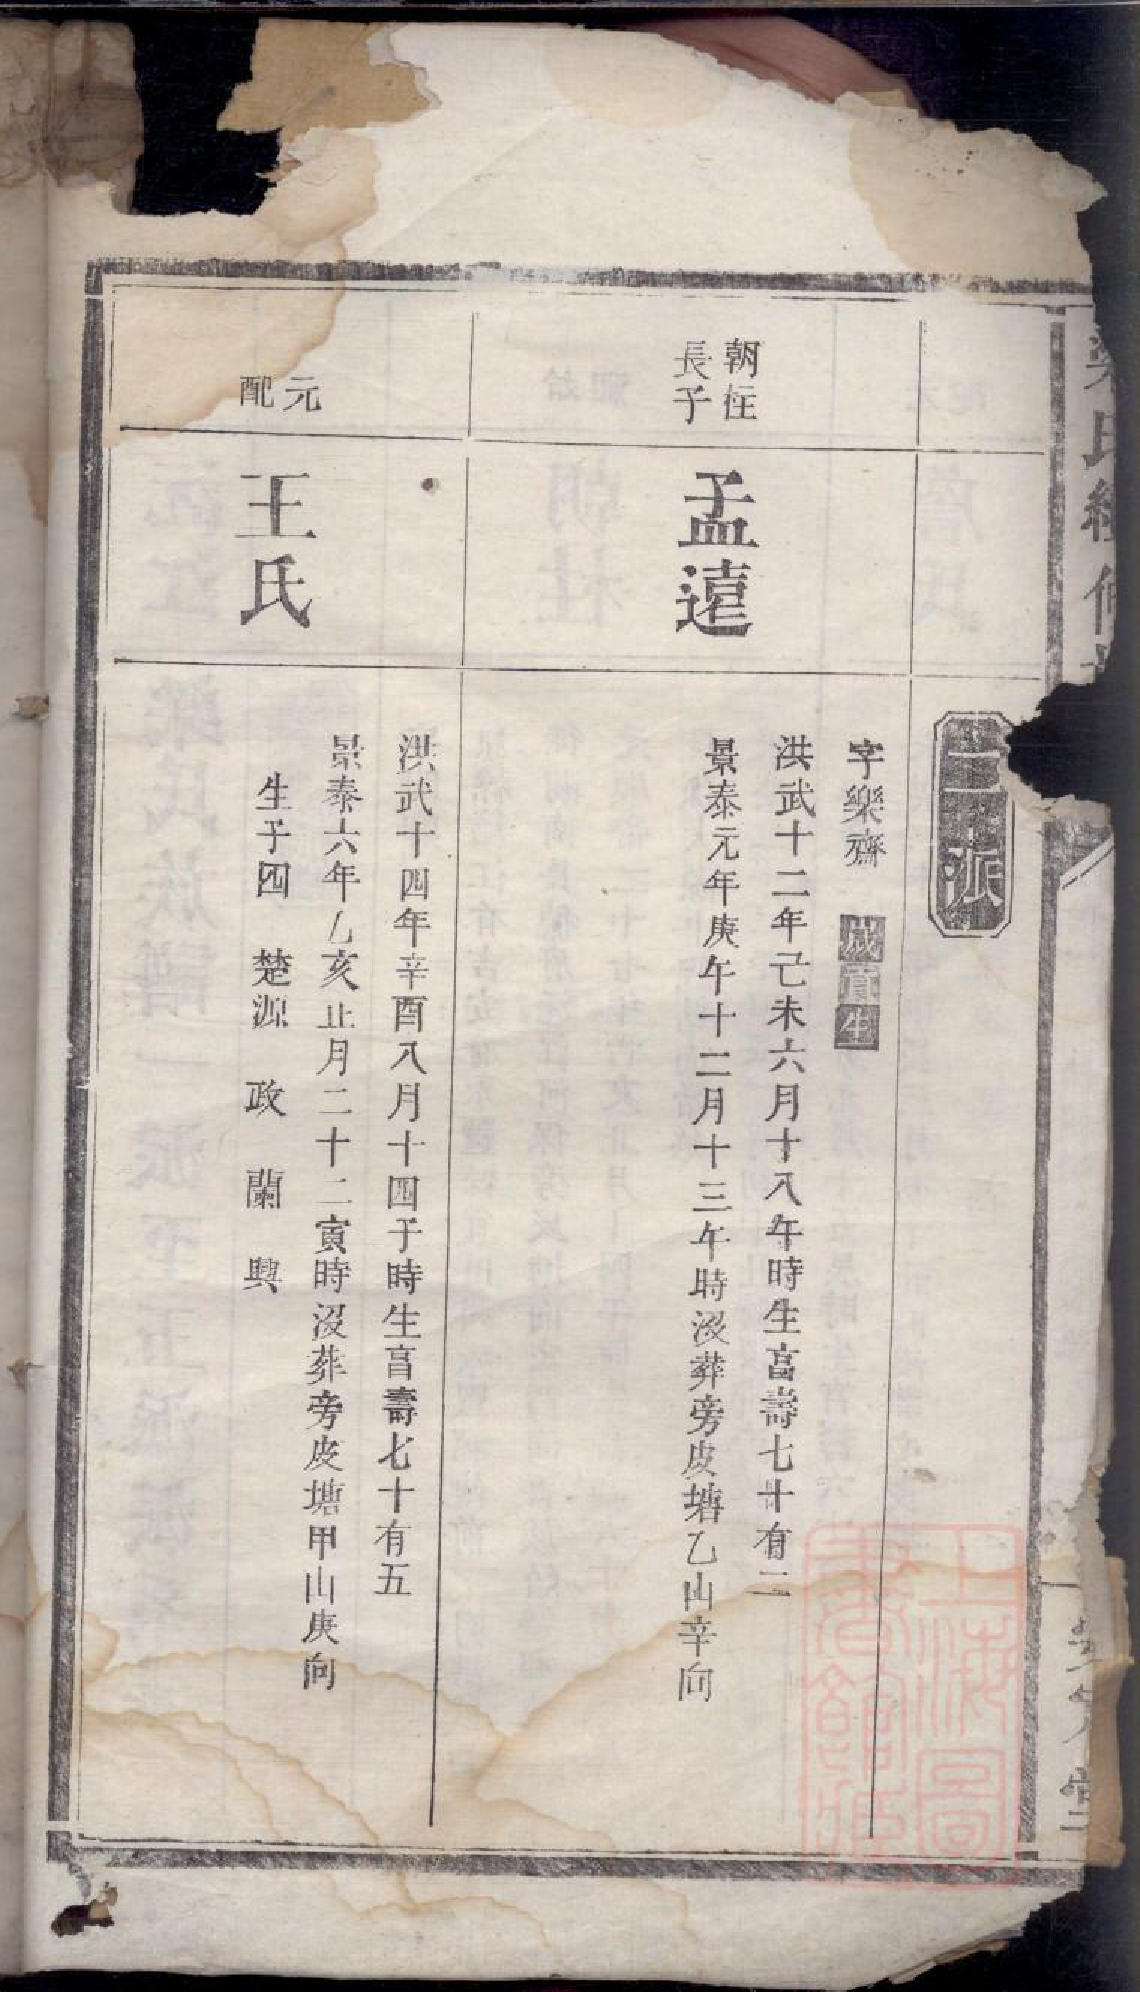 梁氏續修
二派
朝柱
長子
孟遠
字樂齋 歲貢生
洪武十二年己未六月十八午時生享壽七十有二
景泰元年庚午十二月十三午時沒葬旁皮塘乙山辛向
元
配
王氏
洪武十四年辛酉八月十四子時生享壽七十有五
景泰六年乙亥正月二十二寅時沒葬旁皮塘甲山庚向
生子四 楚源 政 蘭 興
上海圖
書館藏